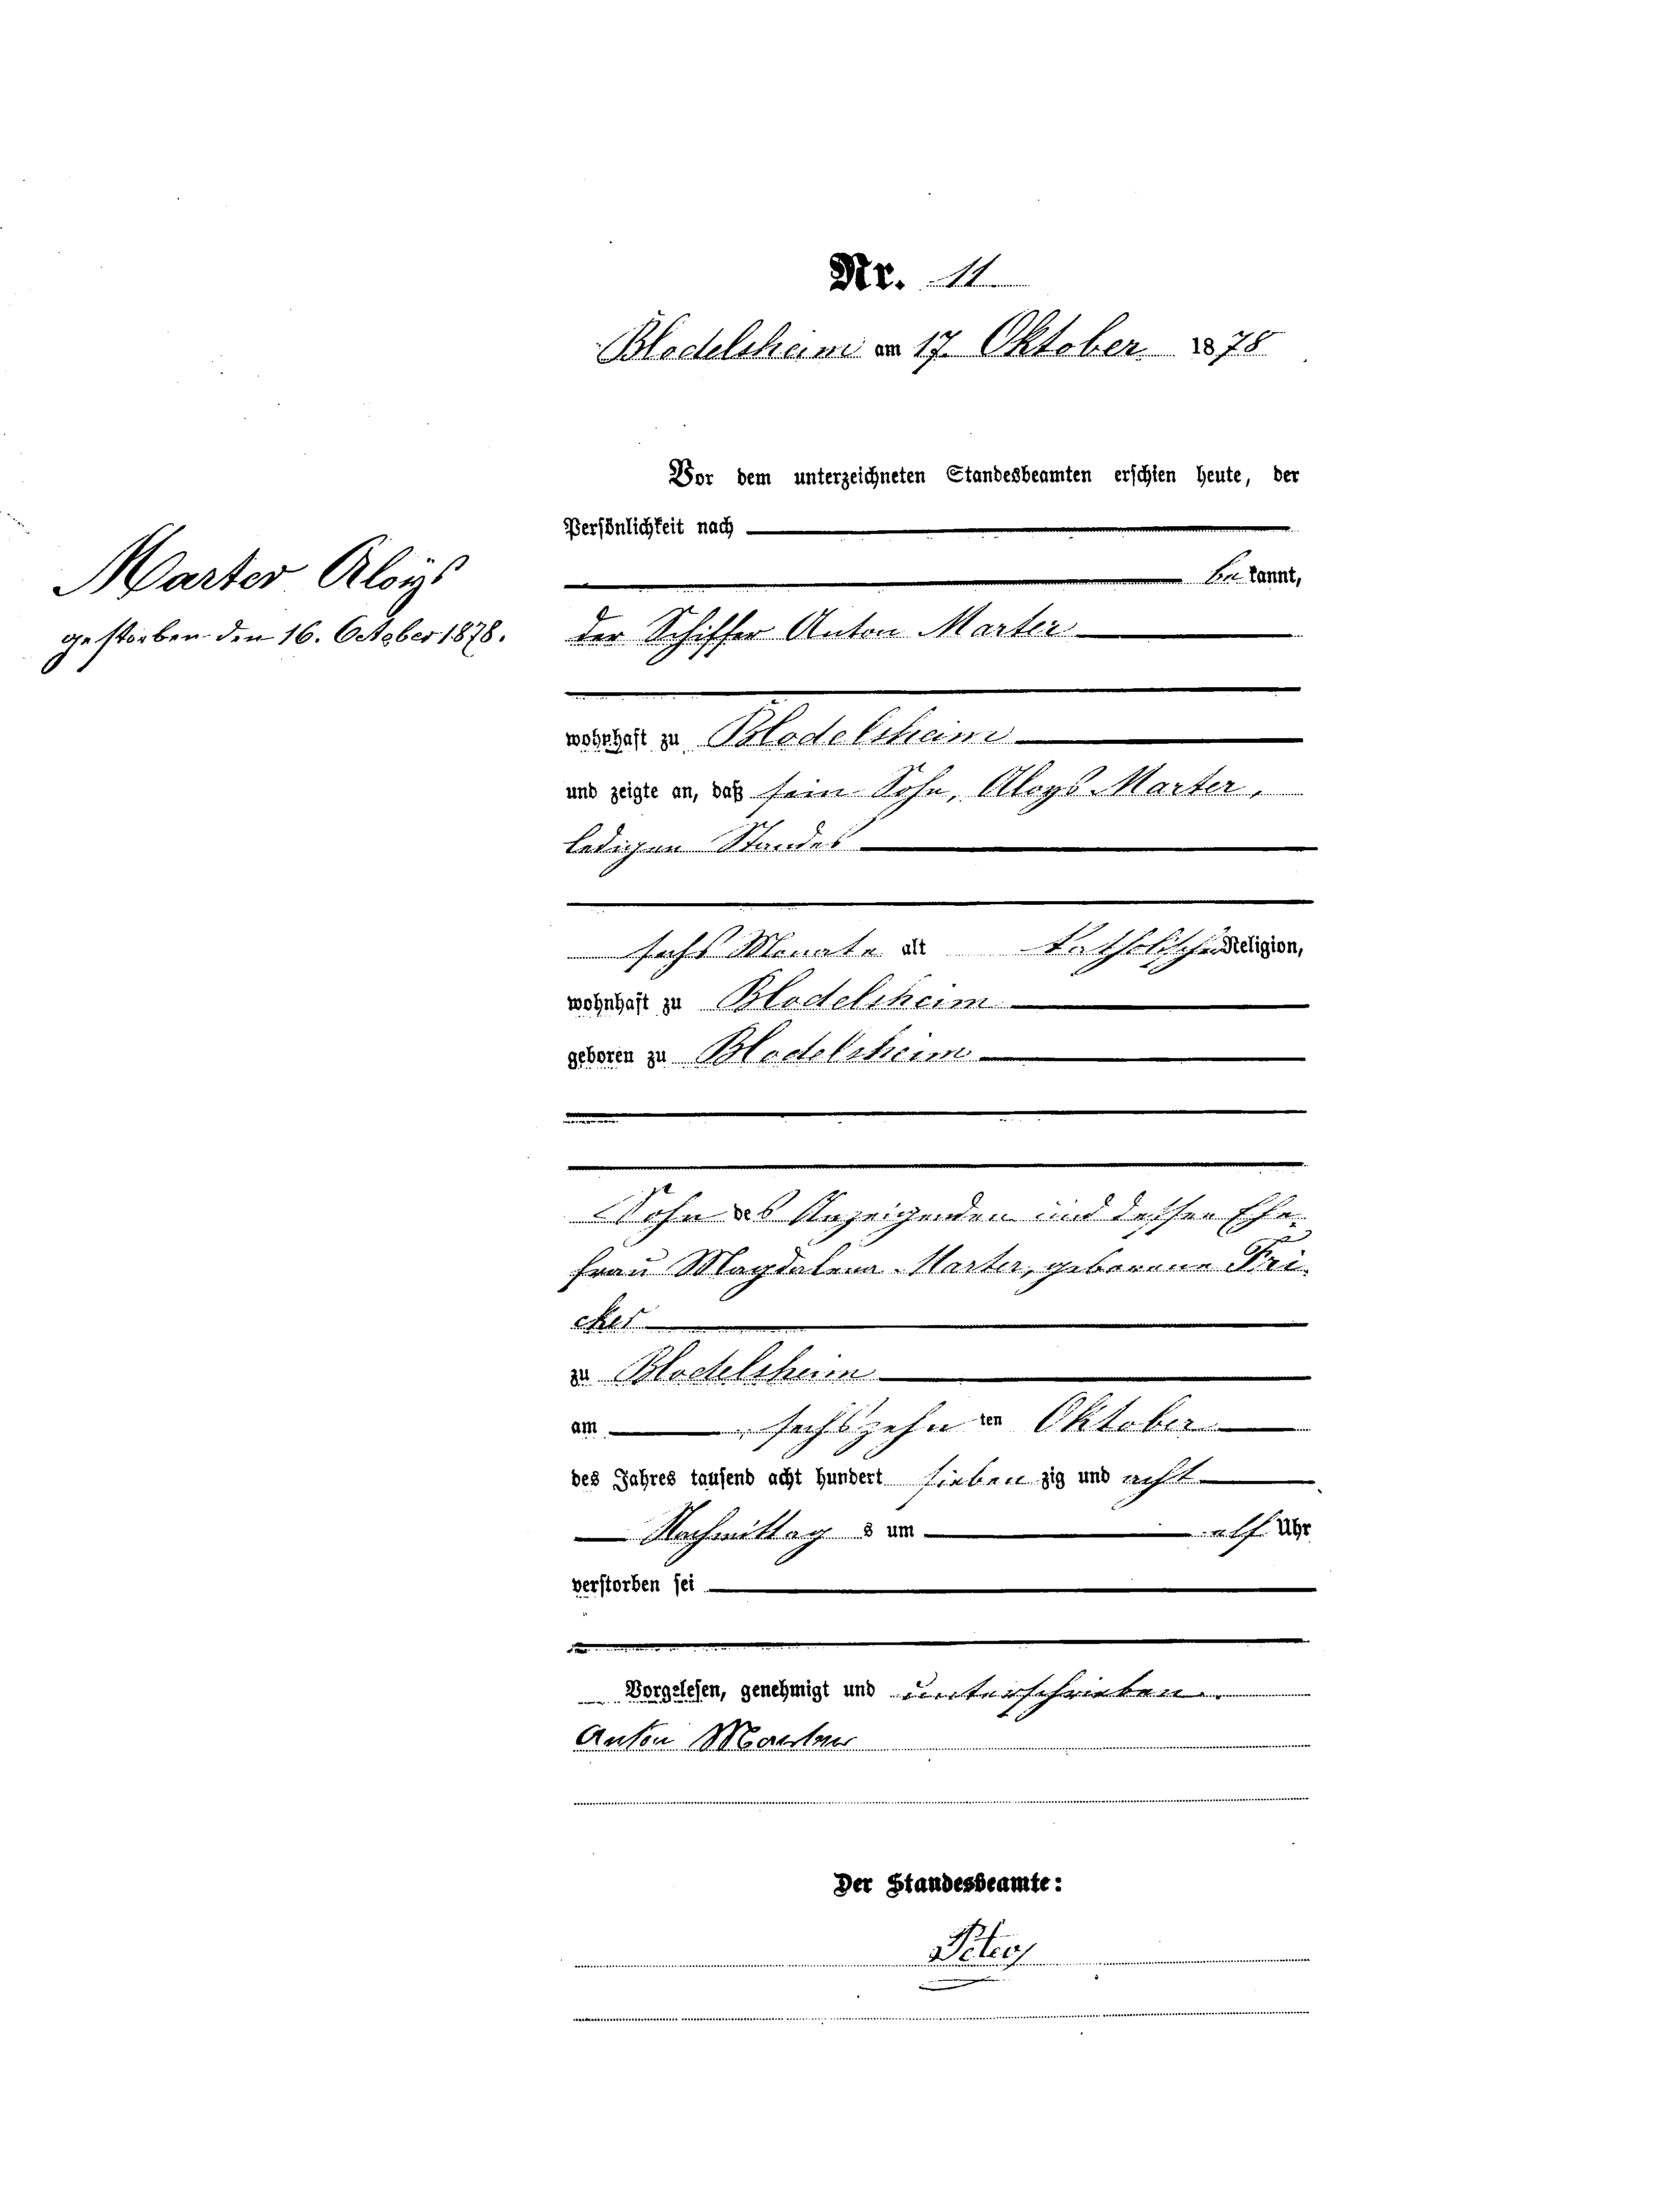 Nr. 11
Blodelsheim am 17. Oktober 1878
Vor dem unterzeichneten Standesbeamten erschien heute, der
Persönlichkeit nach
bekannt,
Marter Aloÿs
gestorben den 16. October 1878.
der Schiffer Anton Marter
wohnhaft zu Blodelsheim
und zeigte an, daß sein Sohn, Aloys Marter,
ledigen Standes
sechs Monate alt katholischer Religion,
wohnhaft zu Blodelsheim
geboren zu Blodelsheim
Sohn des Anzeigenden und dessen Ehe-
frau Magdalena Marter, geborene Fri-
cker
zu Blodelsheim
am sechszehn ten Oktober
des Jahres tausend acht hundert sieben zig und acht
Nachmittag s um elf Uhr
verstorben sei
Vorgelesen, genehmigt und unterschrieben.
Anton Marter
Der Standesbeamte:
Peter